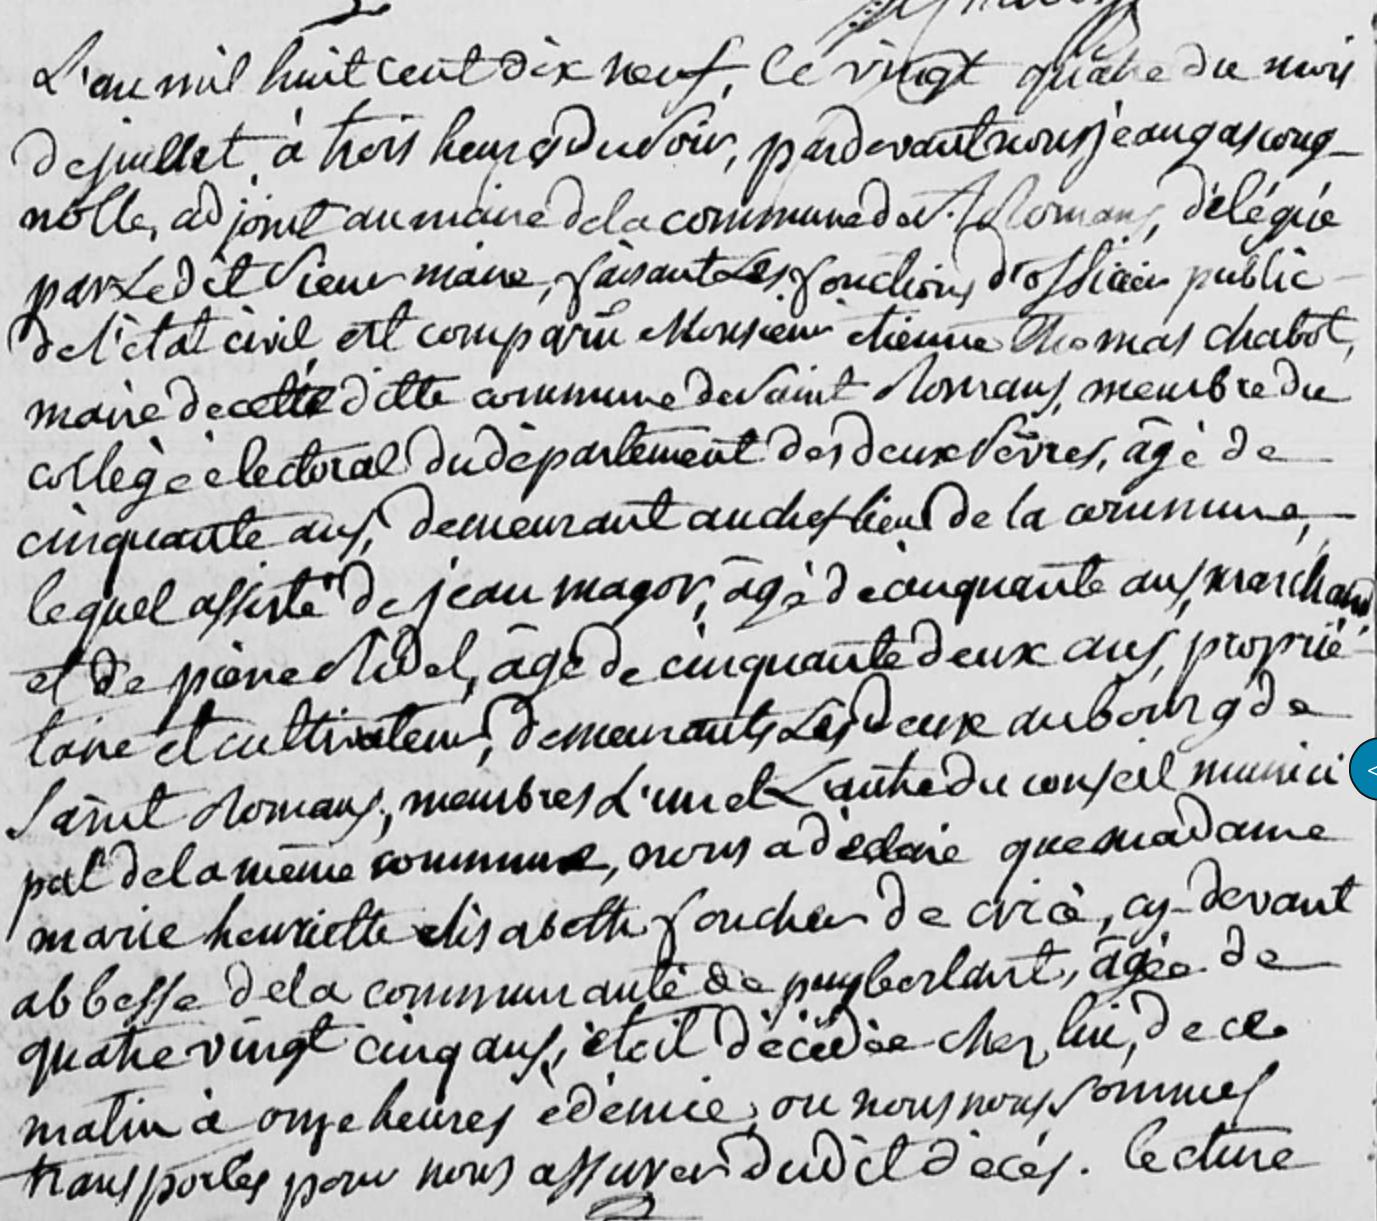 L'an mil huit cent dix neuf, le vingt quatre du mois
de juillet à trois heures du soir, pardevant nous jean gascoug-
nolle, adjoint au maire de la commune de St. Romans, délégué
par Ledit sieur maire, faisant Les fonctions d'officier public
de l'état civil, est comparû Monsieur etienne Thomas chabot,
maire de cette ditte commune de Saint Romans, membre du
collège electoral du département des deux Sèvres, âgé de
cinquante ans, demeurant au chef lieu de la commune,
lequel assisté de jean magor, âgé de cinquante ans, marchand
et de pierre Nidel, âgé de cinquante deux ans, proprié-
taire et cultivateur, demeurants Les deux au bourg de
Saint Romans, membres L'un et L'autre du conseil munici
pal de la même commune, nous a déclaré que madame
marie henriette elisabeth foucher de circé, cy-devant
abbesse de la communauté de puyberlant, âgée de
quatre vingt cinq ans, étoit décédée chez lui, de ce
matin à onze heures et demie, ou nous nous sommes
transportés pour nous assurer dudit décés. lecture